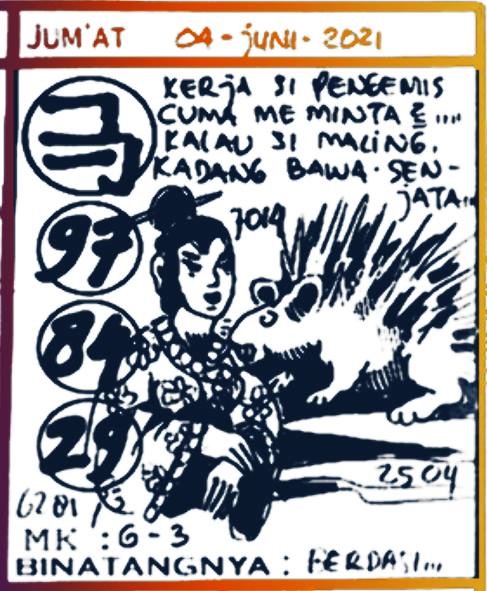 JUM'AT 04 - JUNI - 2021
KERJA SI PENGEMIS
CUMA ME MINTA Ξ ....
KALAU SI MALING.
KADANG BAWA SEN-
JATA...
97
7014
84
29
2504
6281
MK : 6 - 3
BINATANGNYA : BERDASI...